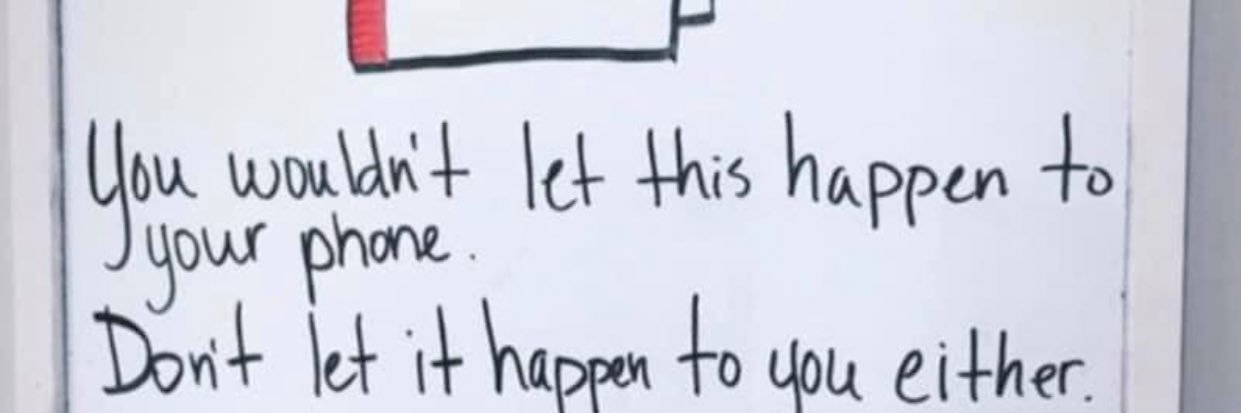 You wouldn't let this happen to
your phone.
Don't let it happen to you either.